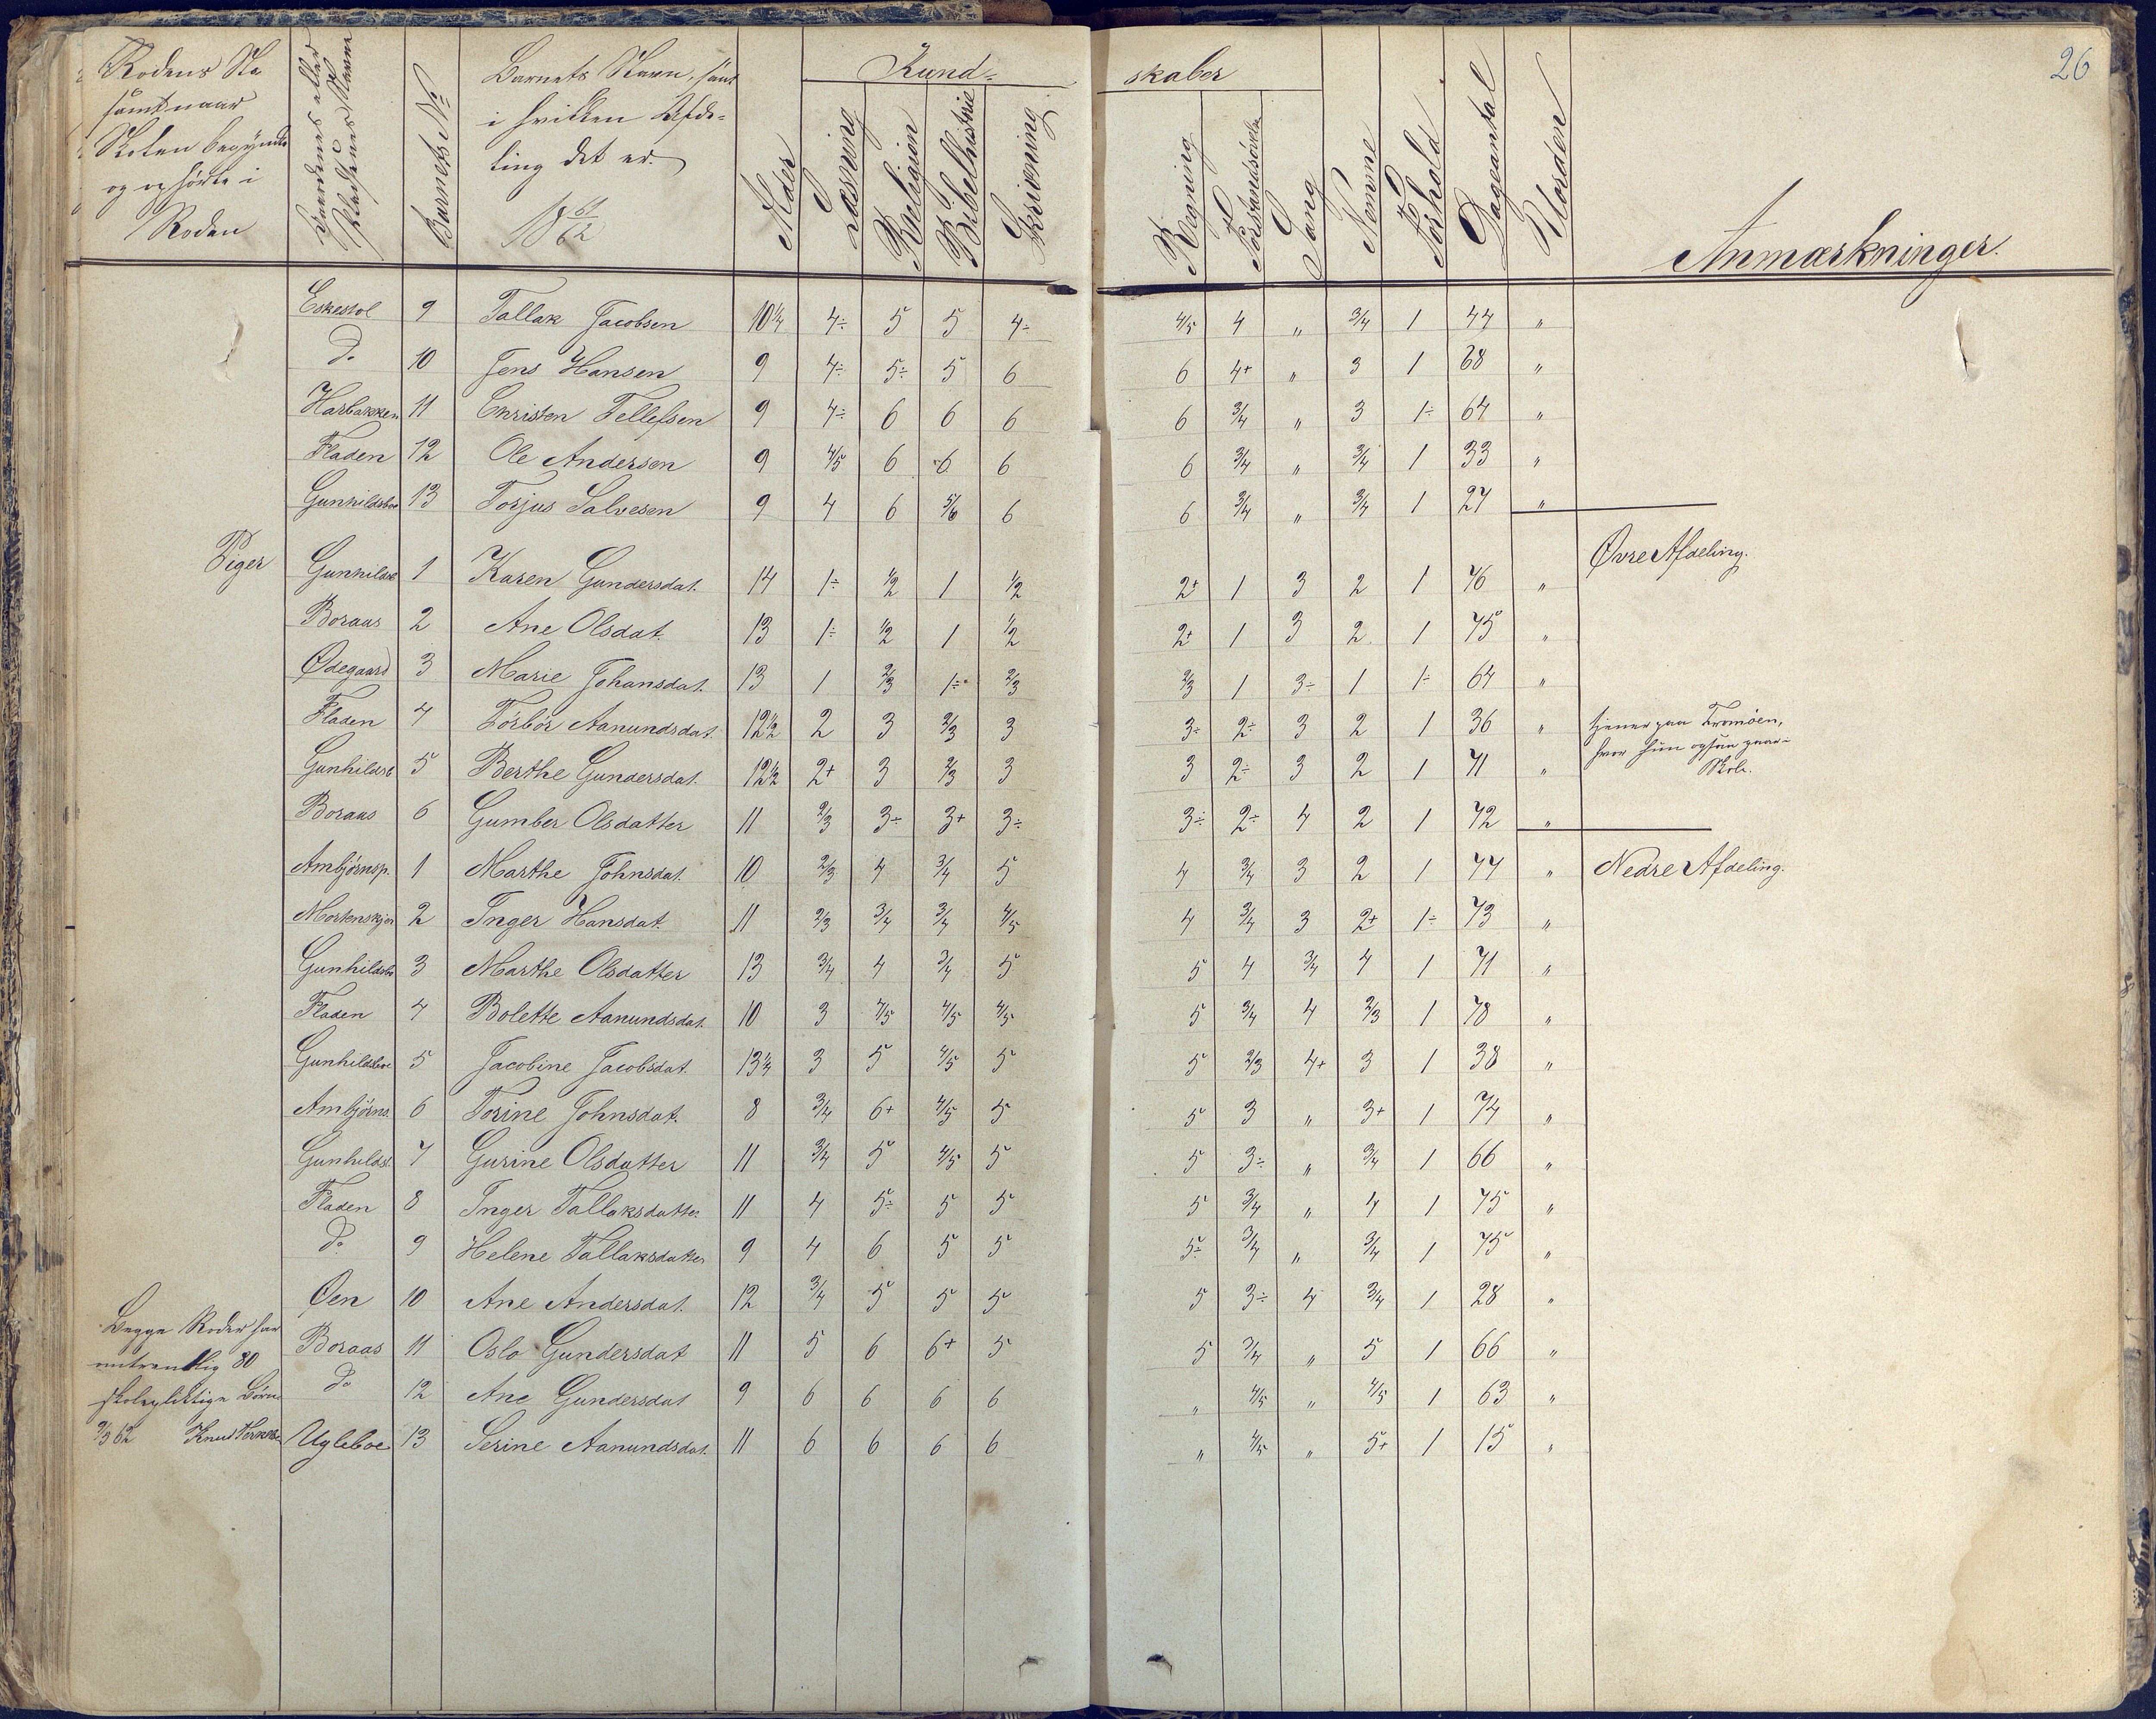 26
Rodens No
samt naar
Skolen begyndte
og ophørte i
Roden
Gaardenes eller Pladsenes Navne
Barnets No
Barnets Navn, samt
i hvilken Afde-
ling det er.
18 61/62
Alder
Kund- skaber
Læsning
Religion
Bibelhistorie
Skrivning
Regning
Forstandsøvelse
Sang
Nemme
Forhold
Dageantal
Uorden
Anmærkninger.
Eskesvol 9 Tallak Jacobsen 10 1/4 4÷ 5 5 4÷ 4/5 4 „ 3/4 1 44 „
do 10 Jens Hansen 9 4÷ 5÷ 5 6 6 4+ „ 3 1 68 „
Harbakken 11 Christen Tellefsen 9 4÷ 6 6 6 6 3/4 „ 3 1÷ 64 „
Fladen 12 Ole Andersen 9 4/5 6 6 6 6 3/4 „ 3/4 1 33 „
Gunhildsboe 13 Torjus Salvesen 9 4 6 5/6 6 6 3/4 „ 3/4 1 27 „
Piger Gunhildsb 1 Karen Gundersdat. 14 1÷ 1/2 1 1/2 2+ 1 3 2 1 76 „ Øvre Afdeling.
Boraas 2 Ane Olsdat. 13 1÷ 1/2 1 1/2 2+ 1 3 2 1 75 „
Ødegaard 3 Marie Johansdat. 13 1 2/3 1÷ 2/3 2/3 1 3÷ 1 1÷ 64 „
Fladen 4 Torbor Aanundsdat. 12 1/2 2 3 2/3 3 3÷ 2÷ 3 2 1 36 „ tjener paa Tromöen,
hvor hun ogsaa gaar i
Skole.
Gunhildsb 5 Berthe Gundersdat. 12 1/2 2+ 3 2/3 3 3 2÷ 3 2 1 71 „
Boraas 6 Gumber Olsdatter 11 2/3 3÷ 3+ 3÷ 3÷ 2÷ 4 2 1 72 „
Ambjörnsp. 1 Marthe Johnsdat. 10 2/3 4 3/4 5 4 3/4 3 2 1 77 „ Nedre Afdeling.
Mortenskjær 2 Inger Hansdat. 11 2/3 3/4 3/4 4/5 4 3/4 3 2+ 1÷ 73 „
Gunhildsb 3 Marthe Olsdatter 13 3/4 4 3/4 5 5 4 3/4 4 1 71 „
Fladen 4 Bolette Aanundsdat. 10 3 4/5 4/5 4/5 5 3/4 4 2/3 1 78 „
Gunhildsboe 5 Jacobine Jacobsdat. 13 1/4 3 5 4/5 5 5 2/3 4+ 3 1 38 „
Ambjörns. 6 Torine Johnsdat. 8 3/4 6+ 4/5 5 5 3 „ 3+ 1 74 „
Gunhildsb. 7 Gurine Olsdatter 11 3/4 5 4/5 5 5 3÷ „ 3/4 1 66 „
Fladen 8 Inger Tallaksdatter 11 4 5÷ 5 5 5 3/4 „ 4 1 75 „
do 9 Helene Tallaksdatter 9 4 6 5 5 5÷ 3/4 „ 3/4 1 75 „
Øen 10 Ane Andersdat. 12 3/4 5 5 5 5 3÷ 4 3/4 1 28 „
Boraas 11 Oslo Gundersdat 11 5 6 6+ 5 5 3/4 „ 5 1 66 „
do 12 Ane Gundersdat 9 6 6 6 6 „ 4/5 „ 4/5 1 63 „
Ugleboe 13 Serine Aanundsdat. 11 6 6 6 6 „ 4/5 „ 5+ 1 15 „
Begge Roder har
omtrentlig 80
skolepligtige Børn
9/3 62 Knud